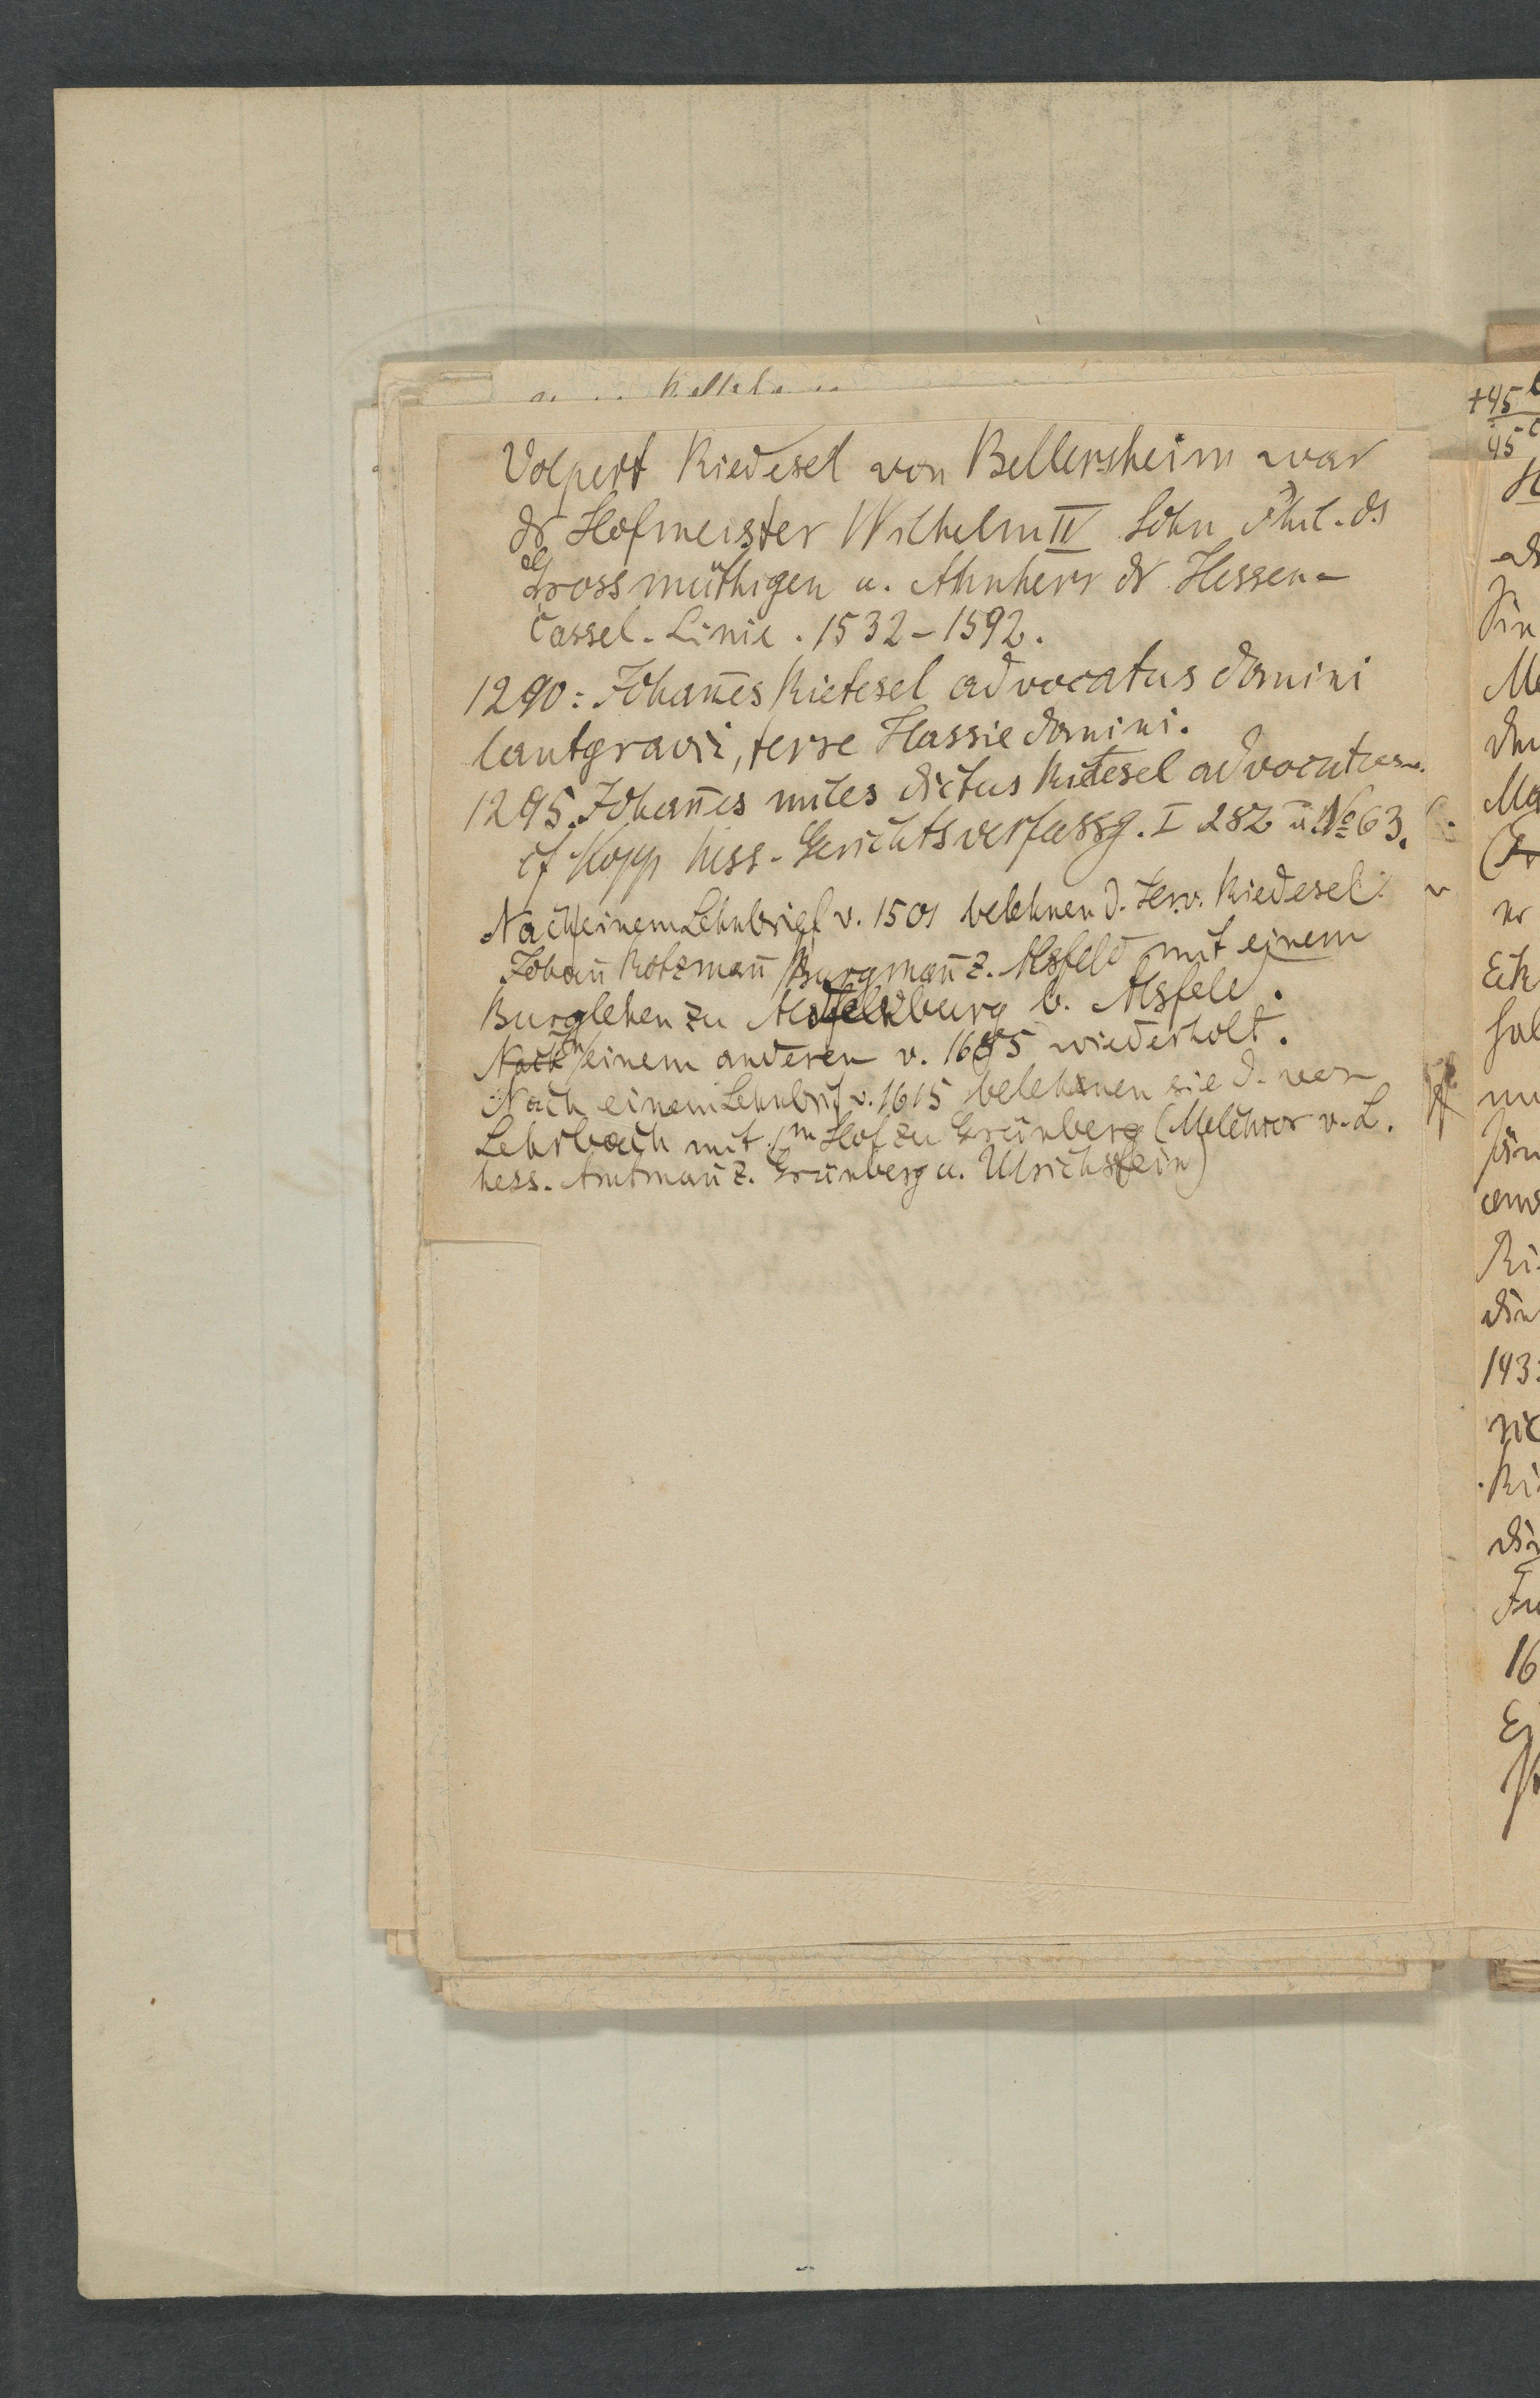 Volpert Riedesel von Bellersheim war
dr Hofmeister Wilhelm IV Sohn Phil. ds
Grossmüthigen u. Ahnherr dr Hessen-
Cassel-Linie. 1532-1592.
1290: Johan̄es Rietesel advocatus domini
lantgravii, terre Hassie domini.
1295. Johan̄es miles dictus Rietesel advocatus
cf Kopp hess. Gerichtsverfassg. I 282 u. No 63.
Nach einem Lehnbrief v. 1501 belehnen d. Herv. Riedesel
Johan̄ Rotzman̄ Burgman̄ z. Alsfeld mit einem
Burglehen zu Altenburg b. Alsfeld.
Nach In einem anderen v. 1685 wiederholt.
Nach einem Lehnbrf v. 1615 belehnen sie d. von
Lehrbach mit 1m Hof zu Grünberg (Melchior v. L.
hess. Amtman̄ z. Grünberg u. Ulrichstein)
+45
45
Me
Ma
Eck
Ri
143
Ri
16